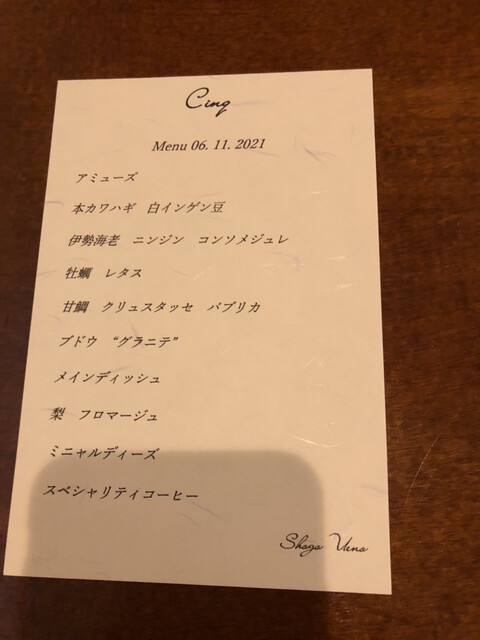 Cinq
Menu 06. 11. 2021
アミューズ
本カワハギ　白インゲン豆
伊勢海老　ニンジン　コンソメジュレ
牡蠣　レタス
甘鯛　クリュスタッセ　パプリカ
ブドウ　“グラニテ”
メインディッシュ
梨　フロマージュ
ミニャルディーズ
スペシャリティコーヒー
Shogo Ueno